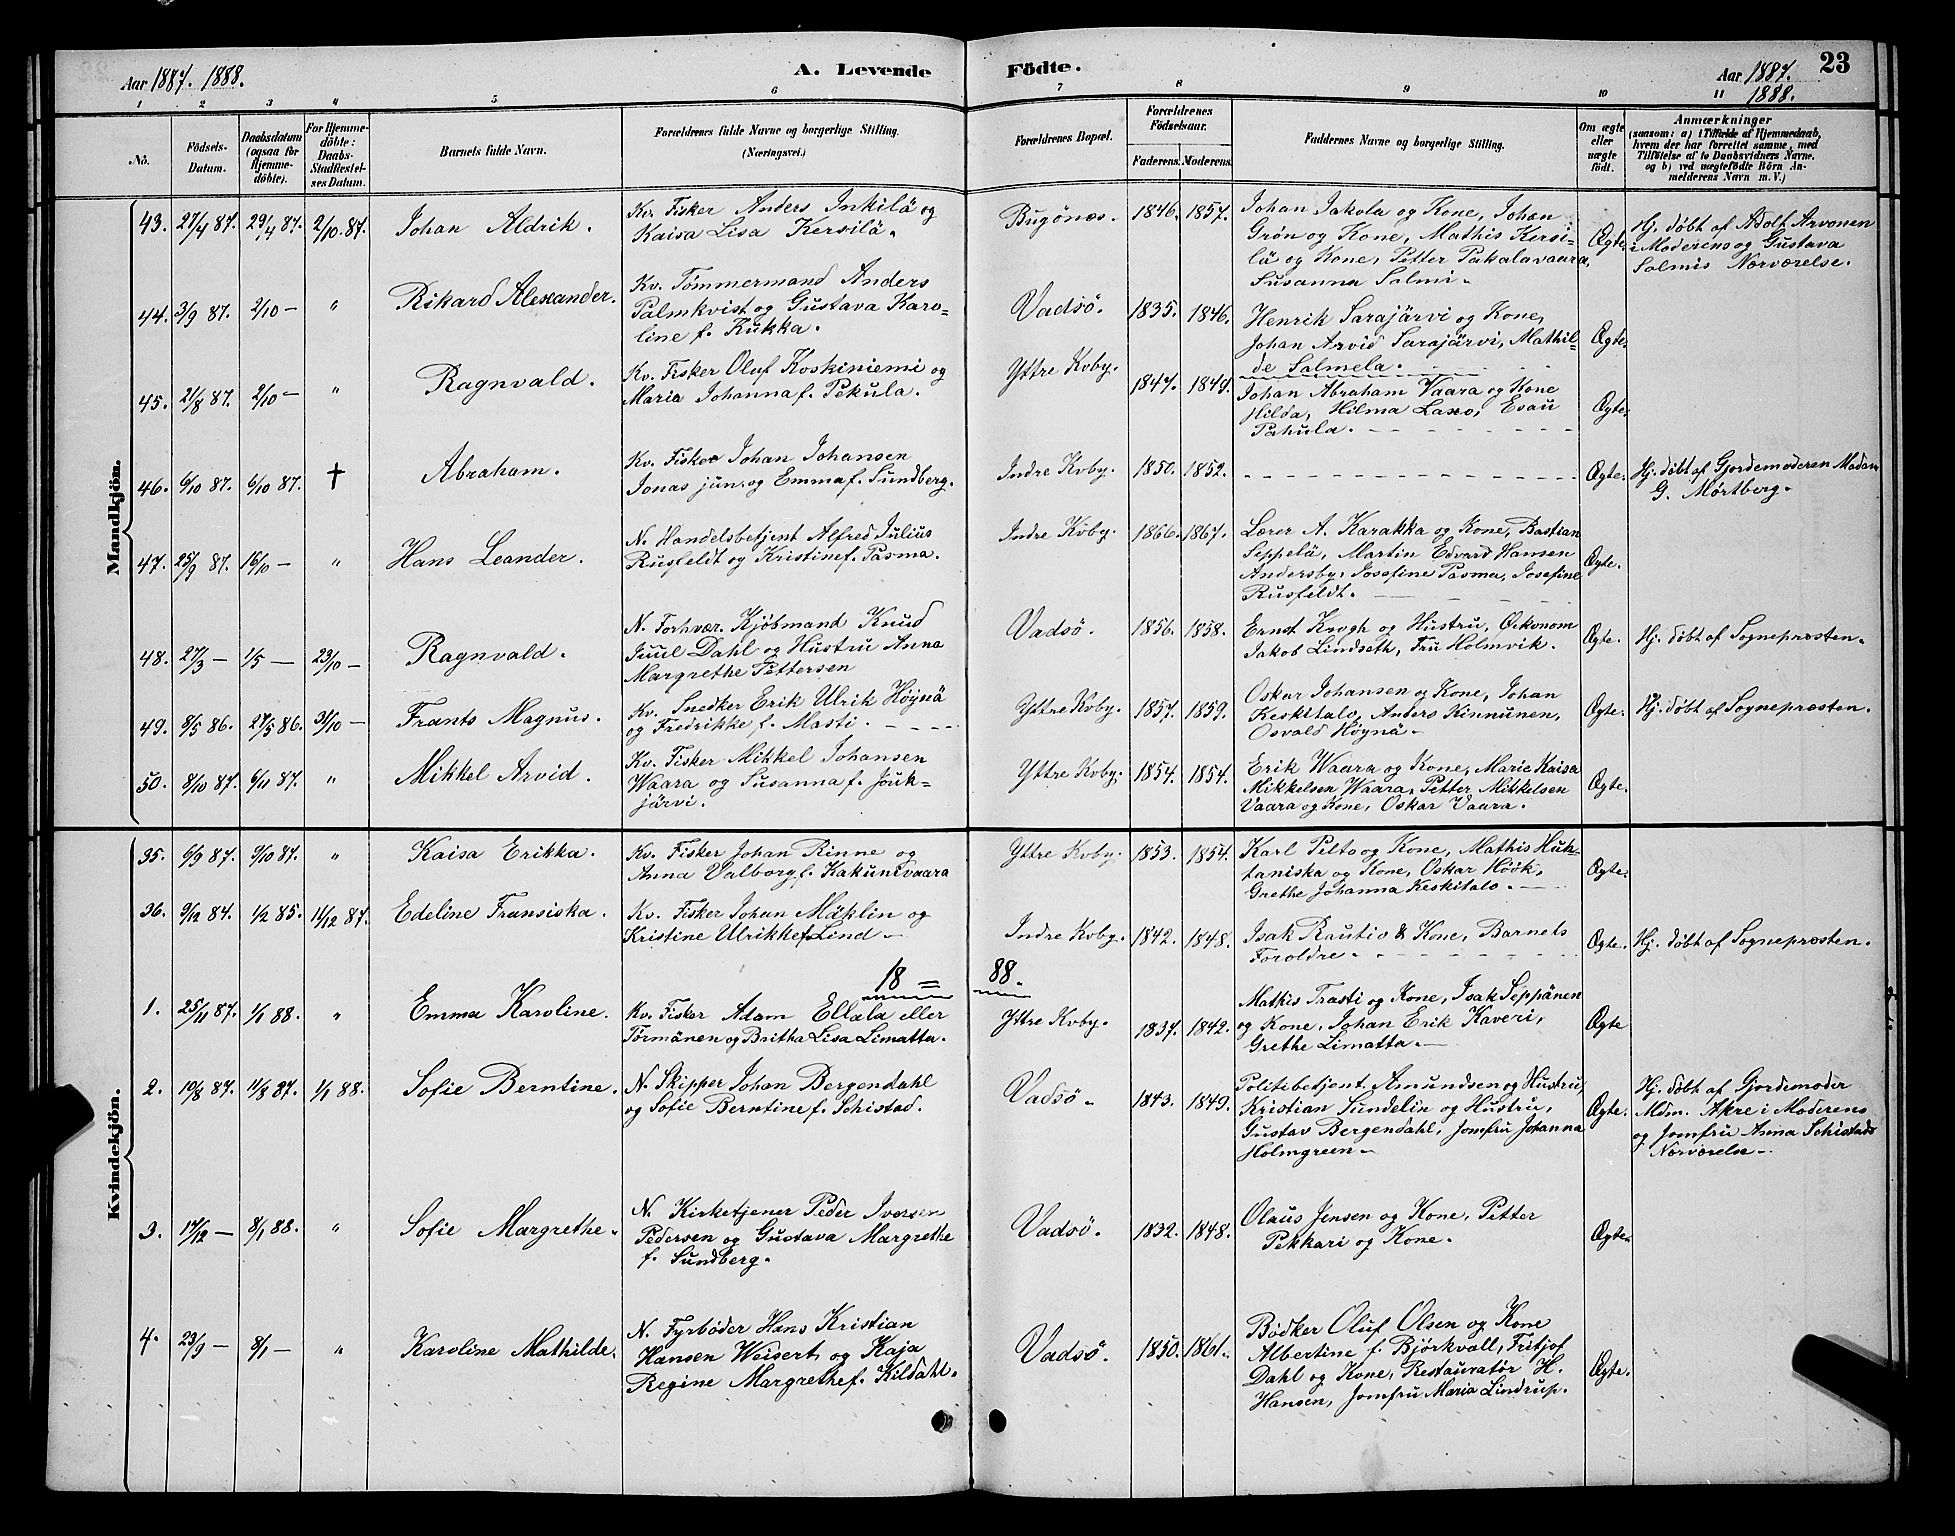 Aar 1887. 1888.
A. Levende Födte.
Aar 1887. 1888.
23
1 2 3 4 5 6 7 8 9 10 11
No.
Födsels-Datum.
Daabsdatum (ogsaa for Hjemme-döbte).
For Hjemme-döbte: Daabs-Stadfæstel-ses Datum.
Barnets fulde Navn.
Forældrenes fulde Navne og borgerlige Stilling. (Næringsvei.)
Forældrenes Bopæl.
Forældrenes Födselsaar.
Faderens. Moderens.
Faddernes Navne og borgerlige Stilling.
Om ægte eller uægte födt.
Anmærkninger
(saasom: a) i Tilfælde af Hjemmedaab,
hvem der har forrettet samme, med
Tilföielse af to Daabsvidners Navne,
og b) ved uægtefödte Börn An-
melderens Navn m. V.)
Mandkjön.
43. 27/4 87. 29/4 87. 2/10. 87. Johan Aldrik.
Kv. Fisker Anders Inkilä og
Kaisa Lisa Kersilä.
Bugönæs. 1846. 1857.
Johan Jakola og Kone, Johan
Grön og Kone, Mathis Kersi-
lä og Kone, Petter Pakalavaara,
Susanna Salmi.
Ægte.
Hj. döbt af Adolf Arvonen
i Moderens og Gustava
Salmis Nærværelse.
44. 3/9 87. 2/10 — " Rikard Alexander.
Kv. Tömmermand Anders
Palmkvist og Gustava Karo-
line f. Kukka.
Vadsö. 1835. 1846.
Henrik Sarajärvi og Kone,
Johan Arvid Sarajärvi, Mathil-
de Salmela.
Ægte.
45. 21/8 87. 2/10 — " Ragnvald.
Kv. Fisker Oluf Koskiniemi og
Maria Johanna f. Pekula.
Yttre Kvby. 1847. 1849.
Johan Abraham Vaara og Kone
Hilda, Hilma Laxo, Esau
Pahula.
Ægte.
46. 6/10 87. 6/10 87. † Abraham.
Kv. Fisker Johan Johansen
Jonas jun. og Emma f. Sundberg.
Indre Kvby. 1850. 1852.
Ægte.
Hj. döbt af Gjordemoderen Madam
G. Mörtberg.
47. 25/9 87. 16/10 — " Hans Leander.
N. Handelsbetjent Alfred Julius
Rusfeldt og Kristine f. Pasma.
Indre Kvby. 1866. 1867.
Lærer A. Karakka og Kone, Bastian
Seppelä, Martin Edvard Hansen
Andersby, Josefine Pasma, Josefine
Rusfeldt.
Ægte.
48. 27/3 — 1/5 — 23/10 — Ragnvald.
N. Forhvær. Kjöbmand Knud
Juul Dahl og Hustru Anna
Margrethe Pettersen
Vadsö. 1856. 1858.
Ernst Krogh og Hustru, Oikonom
Jakob Lindseth, Fru Holmvik.
Ægte.
Hj. döbt af Sognepræsten.
49. 8/5 86. 27/5 86. 31/10 — Frants Magnus.
Kv. Snedker Erik Ulrik Höynä
og Fredrikke f. Masti.
Yttre Kvby. 1857. 1859.
Oskar Johansen og Kone, Johan
Keskitalo, Anders Kinnunen,
Osvald Höynä
Ægte.
Hj. döbt af Sognepræsten.
50. 8/10 87. 6/11 87. " Mikkel Arvid.
Kv. Fisker Mikkel Johansen
Waara og Susanna f. Jouk-
järvi.
Yttre Kvby. 1854. 1854.
Erik Waara og Kone, Marie Kaisa
Mikkelsen Waara, Petter Mikkelsen
Vaara og Kone, Oskar Vaara.
Ægte.
Kvindekjön.
35. 6/9 87. 9/10 87. " Kaisa Erikka.
Kv. Fisker Johan Rinne og
Anna Valborg f. Kakunivaara
Yttre Kvby. 1853. 1854.
Karl Pilto og Kone, Mathis Huh-
taniska og Kone, Oskar Höök,
Grethe Johanna Keskitalo.
Ægte.
36. 9/12 84. 1/2 85. 11/12 87. Edeline Fransiska.
Kv. Fisker Johan Mäklin og
Kristine Ulrikke f. Lind
Indre Kvby. 1842. 1848.
Isak Rautio & Kone, Barnets
Foroldre.
Ægte.
Hj. döbt af Sognepræsten.
18 = 88.
1. 25/11 87. 1/1 88. " Emma Karoline.
Kv. Fisker Adam Ellala eller
Törmänen og Britha Lisa Limatta.
Yttre Kvby. 1837. 1842.
Mathis Trasti og Kone, Isak Seppänen
og Kone, Johan Erik Kaveri,
Grethe Limatta.
Ægte
2. 10/8 87. 11/8 87. 1/1 88. Sofie Berntine.
N. Skipper Johan Bergendahl
og Sofie Berntine f. Schistad.
Vadsö. 1843. 1849.
Politibetjent Amundsen og Hustru,
Kristian Sundelin og Hustru,
Gustav Bergendahl, Jomfru Johanna
Holmgreen.
Ægte.
Hj. döbt af Gjordemoder
Mdm. Akre i Moderens
og Jomfru Anna Schistads
Nærværelse.
3. 17/12 — 8/1 88. " Sofie Margrethe.
N. Kirketjener Peder Iversen
Pedersen og Gustava Margrethe
f. Sundberg.
Vadsö. 1832. 1848.
Olaus Jensen og Kone, Petter
Pekkari og Kone.
Ægte.
4. 23/9 — 8/1 — " Karoline Mathilde.
N. Fyrböder Hans Kristian
Hansen Weisert og Kaja
Regine Margrethe f. Kildahl.
Vadsö. 1850. 1861.
Bödker Oluf Olsen og Kone
Albertine f. Björkvall, Fritjof
Dahl og Kone, Restauratör H.
Hansen, Jomfru Maria Lindrup.
Ægte.